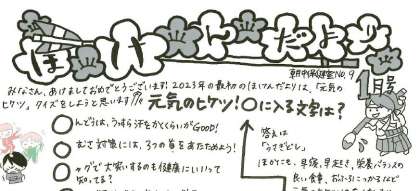 ほけんだより
朝中保健室NO.9
1月号
みなさん、あけましておめでとうございます!2023年の最初のほけんだよりは、「元気の
ヒケツ」クイズをしようと思います!!
元気のヒケツ!○に入る文字は?
○んどうは、うっすら汗をかくくらいがGOOD!
○むさ対策には、3つの首をあたためよう!
○ャグで大笑いするのも健康にいいって
知ってる?
答えは
「うさぎどし」
ほかにも、早寝、早起き、栄養バランスの
良い食事、おふろにつかるなど